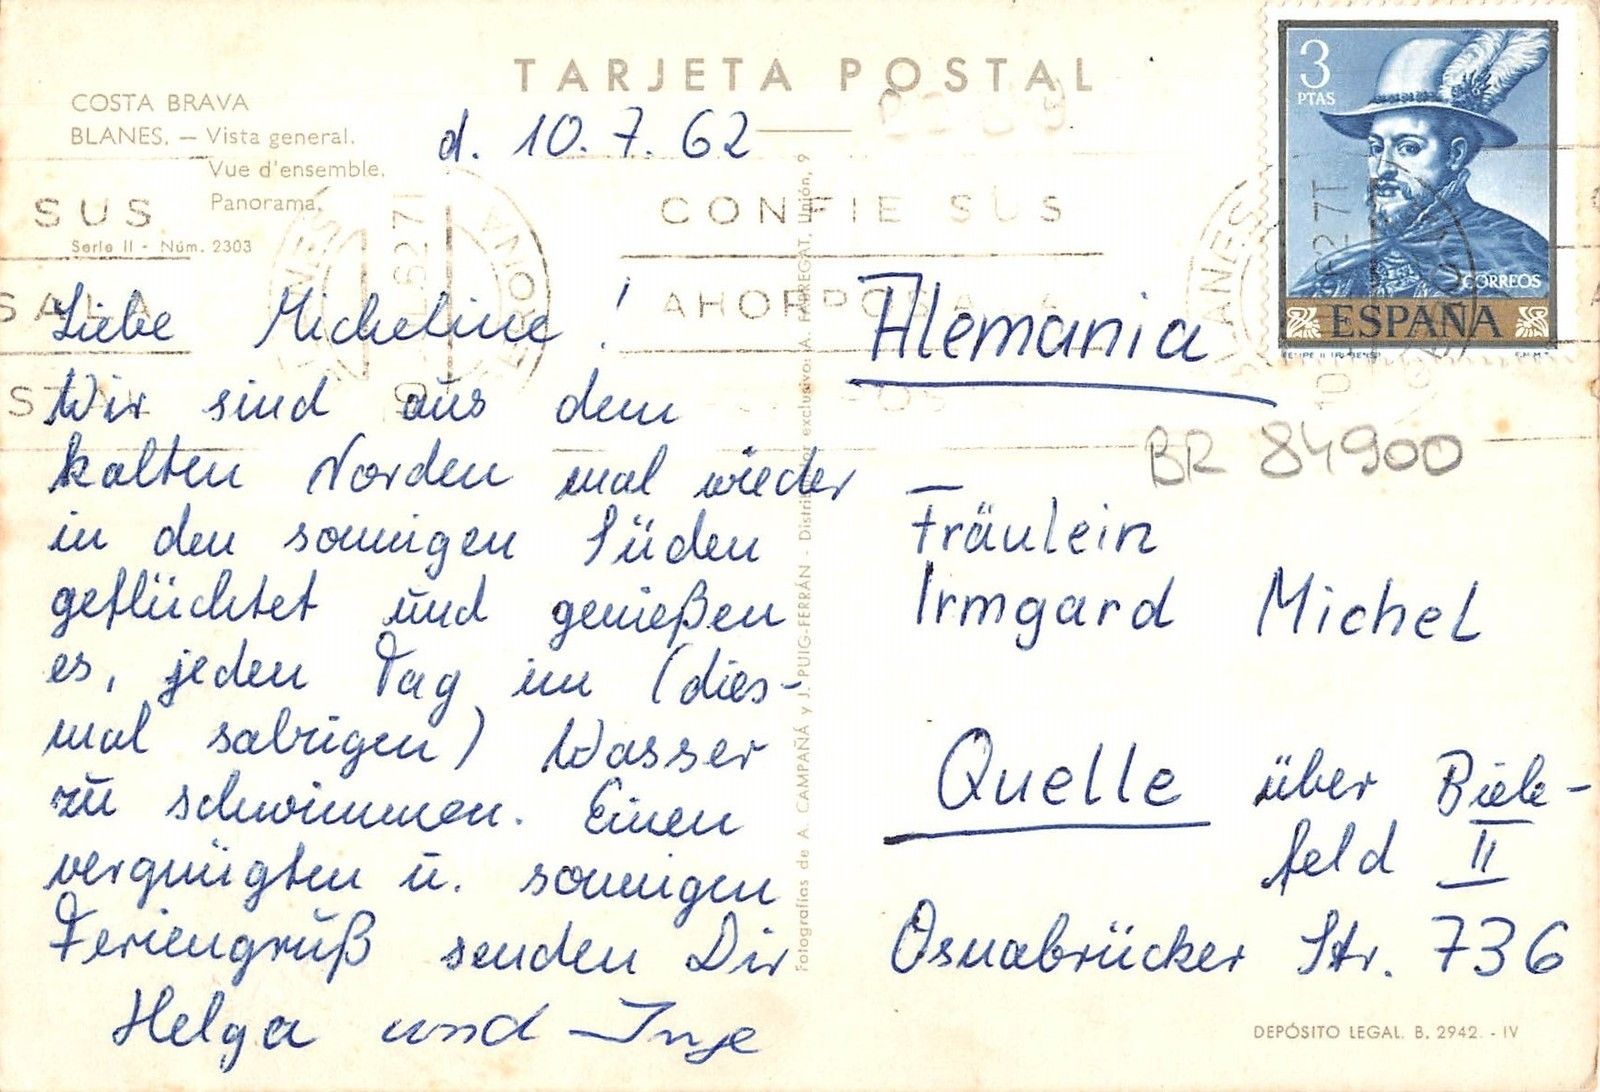 TARJETA POSTAL
COSTA BRAVA
BLANES. — Vista general.
Vue d'ensemble.
Panorama.
Serie II - Núm. 2303
d. 10. 7. 62
SUS
CONFIE SUS
3
PTAS
CORREOS
ESPAÑA
Liebe Micheline!
Wir sind aus dem
kalten Norden mal wieder
in den sonnigen Süden
geflüchtet und genießen
es, jeden Tag im (dies-
mal salzigen) Wasser
zu schwimmen. Einen
vergnügten u. sonnigen
Feriengruß senden Dir
Helga und Inge
Fotografías de A. CAMPAÑÁ y J. PUIG-FERRÁN - Unión, 9
Alemania
BR 84900
Fräulein
Irmgard Michel
Quelle über Biele-
feld II
Osnabrücker Str. 736
DEPÓSITO LEGAL. B. 2942. - IV